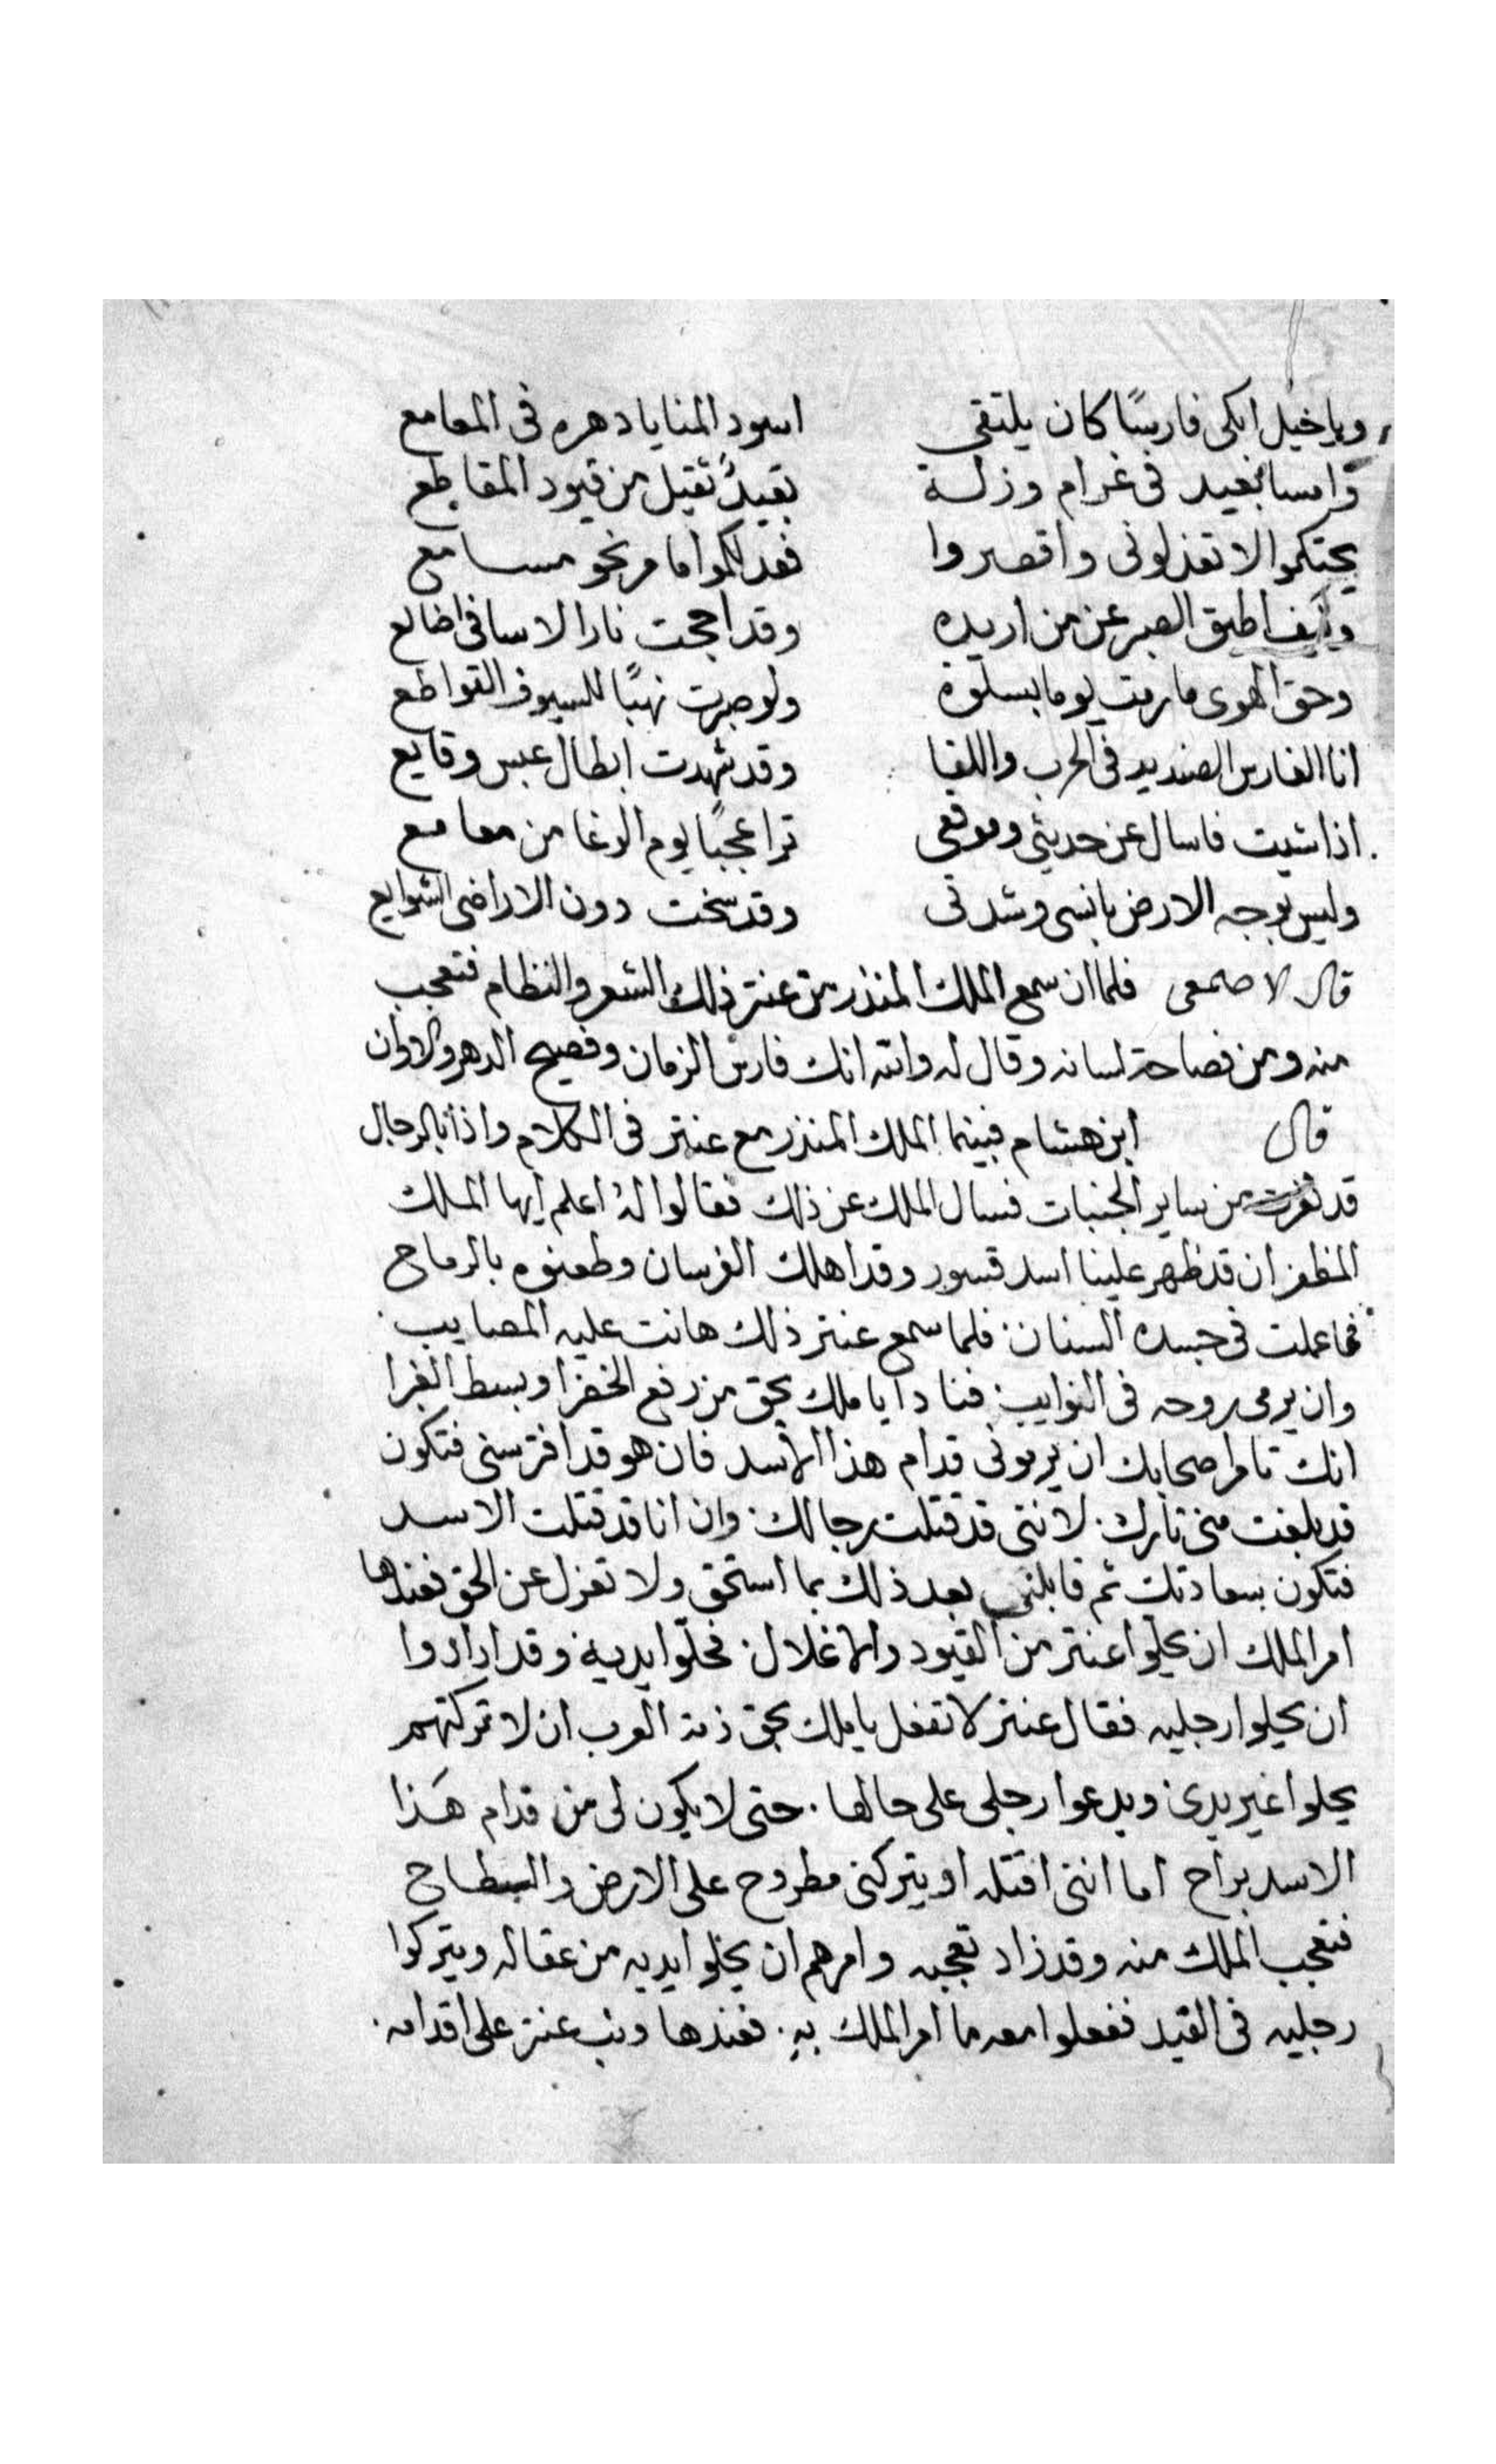 ويا خيل ابكى فارسًا كان يلتقى اسود المنايا دهره فى المعامع
وامسا بعيد فى غرام وزلة بقيدٌ ثقيل من قيود المقاطع
بحتكموا لا تعذلونى واقصروا فعدلكموا ما مر نحو مسامع
وكيف اطيق الصبر عن من اريده وقد اججت نار الاسا فى اضالع
وحق الهوى ما رمت يوما بسلوة ولو صرت نهبًا للسيوف القواطع
انا الفارس الصنديد فى الحرب واللقا وقد شهدت ابطال عبس وقايع
اذا شيت فاسال عن حديثى وموقعى ترا عجبًا يوم الوغا من معامع
وليس بوجه الارض باسى وشدتى وقد سخت دون الاراضى الشوايع
قال الاصمعى فلما ان سمع الملك المنذر من عنتر ذلك الشعر والنظام فتعجب
منه ومن فصاحة لسانه وقال له والله انك فارس الزمان وفصيح الدهر والاوان
قال ابن هشام فبينما الملك المنذر مع عنتر فى الكلام واذا بالرجال
قد نفرت من ساير الجنبات فسال الملك عن ذلك فقالوا له اعلم ايها الملك
المظفر ان قد ظهر علينا اسد قسور وقد اهلك الفرسان وطعنوه بالرماح
فما عملت فى جسده السنان فلما سمع عنتر ذلك هانت عليه المصايب
وان يرمى روحه فى النوايب فنادا يا ملك بحق من رفع الخضرا وبسط الغبرا
انك تامر اصحابك ان يرمونى قدام هذا الاسد فان هو قد افترسنى فتكون
قد بلغت منى تارك لاننى قد قتلت رجالك وان انا قد قتلت الاسد
فتكون بسعادتك ثم قابلنى بعد ذلك بما استحق ولا تعزل عن الحق فعندها
امر الملك ان يحلوا عنتر من القيود والاغلال فحلّوا يديه وقد ارادوا
ان يحلوا رجليه فقال عنتر لا تفعل يا ملك بحق ذمة العرب ان لا تركتهم
يحلوا غير يدى ويدعوا رجلى على حالها حتى لا يكون لى من قدام هَذا
الاسد براح اما اننى اقتله او يتركنى مطروح على الارض والبطاح
فتعجب الملك منه وقد زاد تعجبه وامرهم ان يحلوا ايديه من عقاله ويتركوا
رجليه فى القيد ففعلوا معه ما امر الملك بهِ فعندها وثب عنتر على اقدامه